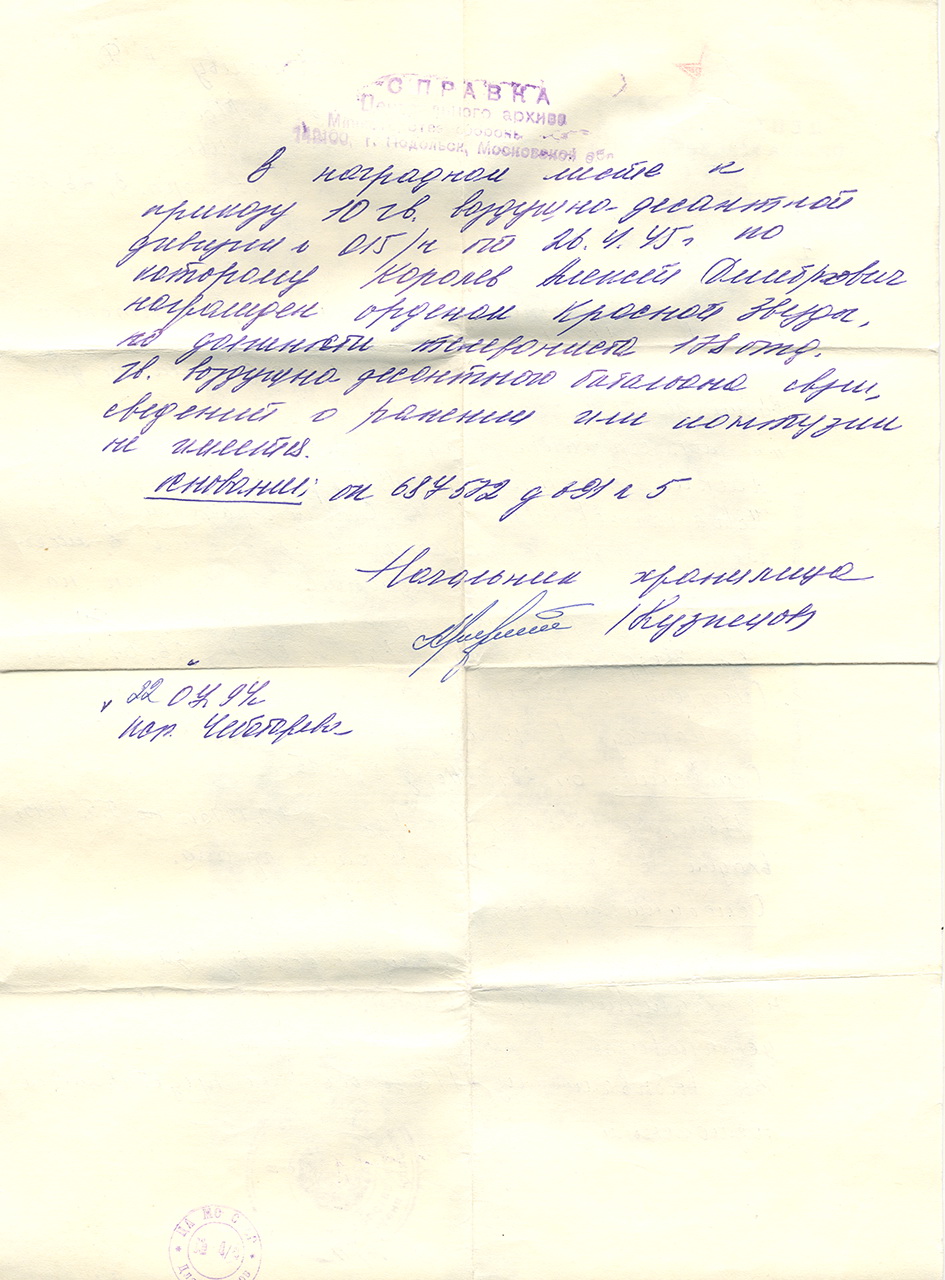 СПРАВКА
архива
г. Подольск, Московской обл
В наградном листе к
приказу 10 гв. воздушно-десантной
дивизии 015/н от 26.4.45г по
которому Королев Алексей Дмитрович
награжден орденом Красной Звезды,
по должности телефониста 178 отд.
гв. воздушно десантного батальона связи,
сведений о ранении или контузии
не имеется.
Основание: оп 687572 д 691 л 5
Начальник хранилища
/Кузнецов
"22" 07 94г
исп. Чеботарева